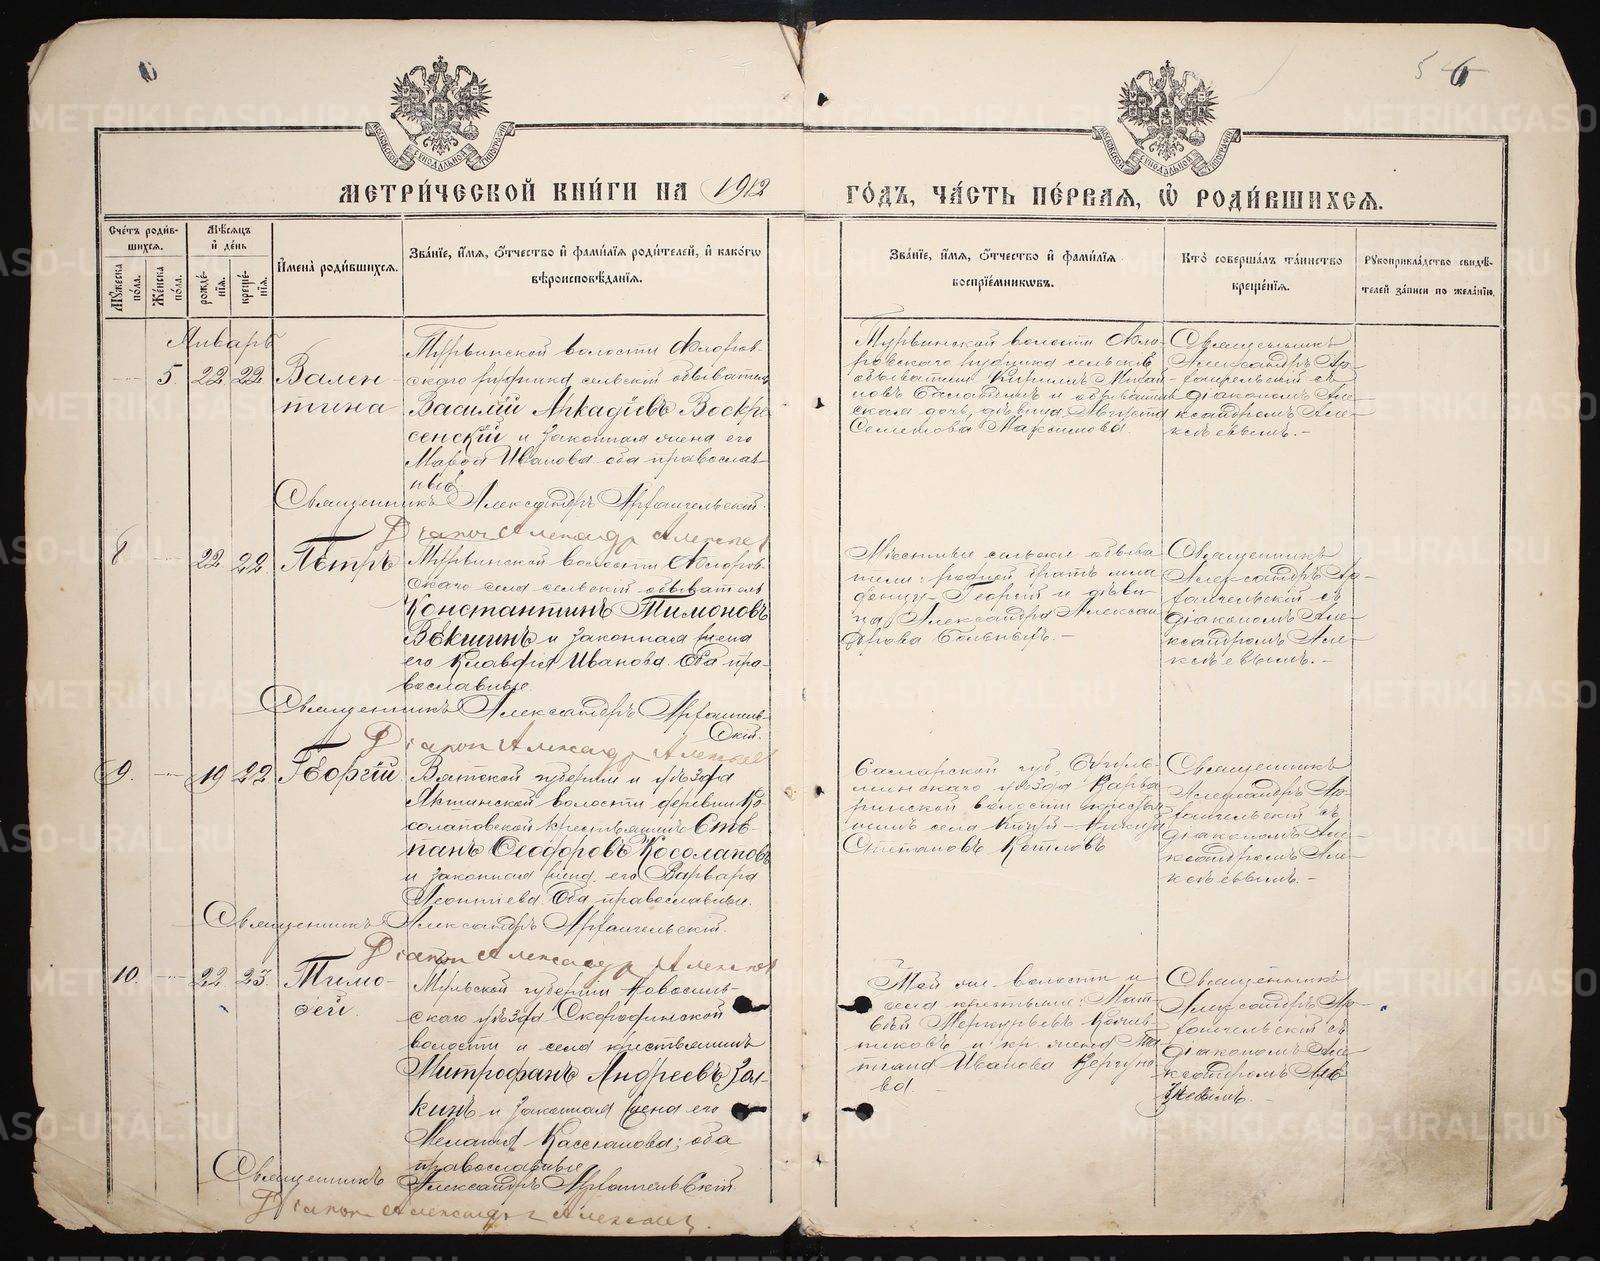 5 6
МОСКОВСКОЙ СѴНОДАЛЬНОЙ ТИПОГРАФІИ
МОСКОВСКОЙ СѴНОДАЛЬНОЙ ТИПОГРАФІИ
МЕТРИ́ЧЕСКОЙ КНИ́ГИ НА 1912
ГО́ДЪ, ЧА́СТЬ ПЕ́РВАЯ, Ѽ РОДИ́ВШИХСЯ.
Сче́тъ роди́в-
шихся.
Му́жеска по́ла.
Же́нска по́ла.
Мѣ́сяцъ
и҆ де́нь
рожде́-
нїя.
креще́-
нїя.
И҆мена̀ роди́вшихся.
Зва́нїе, и҆́мя, ѻ҆́тчество и҆ фами́лїя роди́телей, и҆ како́гѡ
вѣроисповѣ́данїя.
Зва́нїе, и҆́мя, ѻ҆́тчество и҆ фами́лїя
воспрїе́мникѡвъ.
Кто̀ соверша́лъ та́инство
креще́нїя.
Рукоприкла́дство свидѣ́-
телей за́писи по жела́нїю.
Январь
5. 22 22 Вален-
тина
Мурзинской волости
скаго рудника сельскій обыватель
Василій Аркадіевъ Воскре-
сенскій и законная жена его
Марѳа Иванова оба православ-
ные
Священникъ Александръ Архангельскій.
Діаконъ Александръ Алексѣев
Мурзинской волости
ровскаго рудника сельскій
обыватель Кириллъ Михай-
ловъ и обыватель-
ская дочь, дѣвица Августа
Семенова Максимова.
Священникъ
Александръ Ар-
хангельскій съ
діакономъ Але-
ксандромъ Але-
ксѣевымъ. -
8 22 22 Петръ
Мурзинской волости
скаго села сельскій обыватель
Константинъ Тимоновъ
Вѣкшинъ и законная жена
его Клавдія Иванова. Оба пра-
вославные.
Священникъ Александръ Архангель-
скій.
Діаконъ Александръ Алексѣев
Мѣстные сельскіе обыва-
тели: родной братъ мла-
денцу - Георгій и дѣви-
ца Александра Алексан-
дрова Больныхъ. -
Священникъ
Александръ Ар-
хангельскій съ
діакономъ Але-
ксандромъ Але-
ксѣевымъ. -
9. 19 22 Георгій
Вятской губерніи и уѣзда
волости деревни Ко-
солаповской крестьянинъ Сте-
панъ Ѳеодоровъ Косолаповъ
и законная жена его Варвара
Леонтиева. Оба православные.
Священникъ Александръ Архангельскій.
Діаконъ Александръ Алексѣев
Самарской губ., Бугуль-
минскаго уѣзда
волости крестья-
нинъ села Кичуй - Никита
Степановъ Котловъ
Священникъ
Александръ Ар-
хангельскій съ
діакономъ Але-
ксандромъ Але-
ксѣевымъ. -
10. 22 23. Тимо-
ѳей.
Тульской губерніи Новосиль-
скаго уѣзда Скородинской
волости и села крестьянинъ
Митрофанъ Андреевъ Зал-
кинъ и законная жена его
Меланія Кассіанова; оба
православные
Священникъ Александръ Архангельскій.
Діаконъ Александръ Алексѣев.
Той же волости и
села крестьяне: Мат-
вѣй Меркурьевъ
и кр. жена
Иванова
Священникъ
Александръ Ар-
хангельскій съ
діакономъ Але-
ксандромъ Але-
ксѣевымъ. -